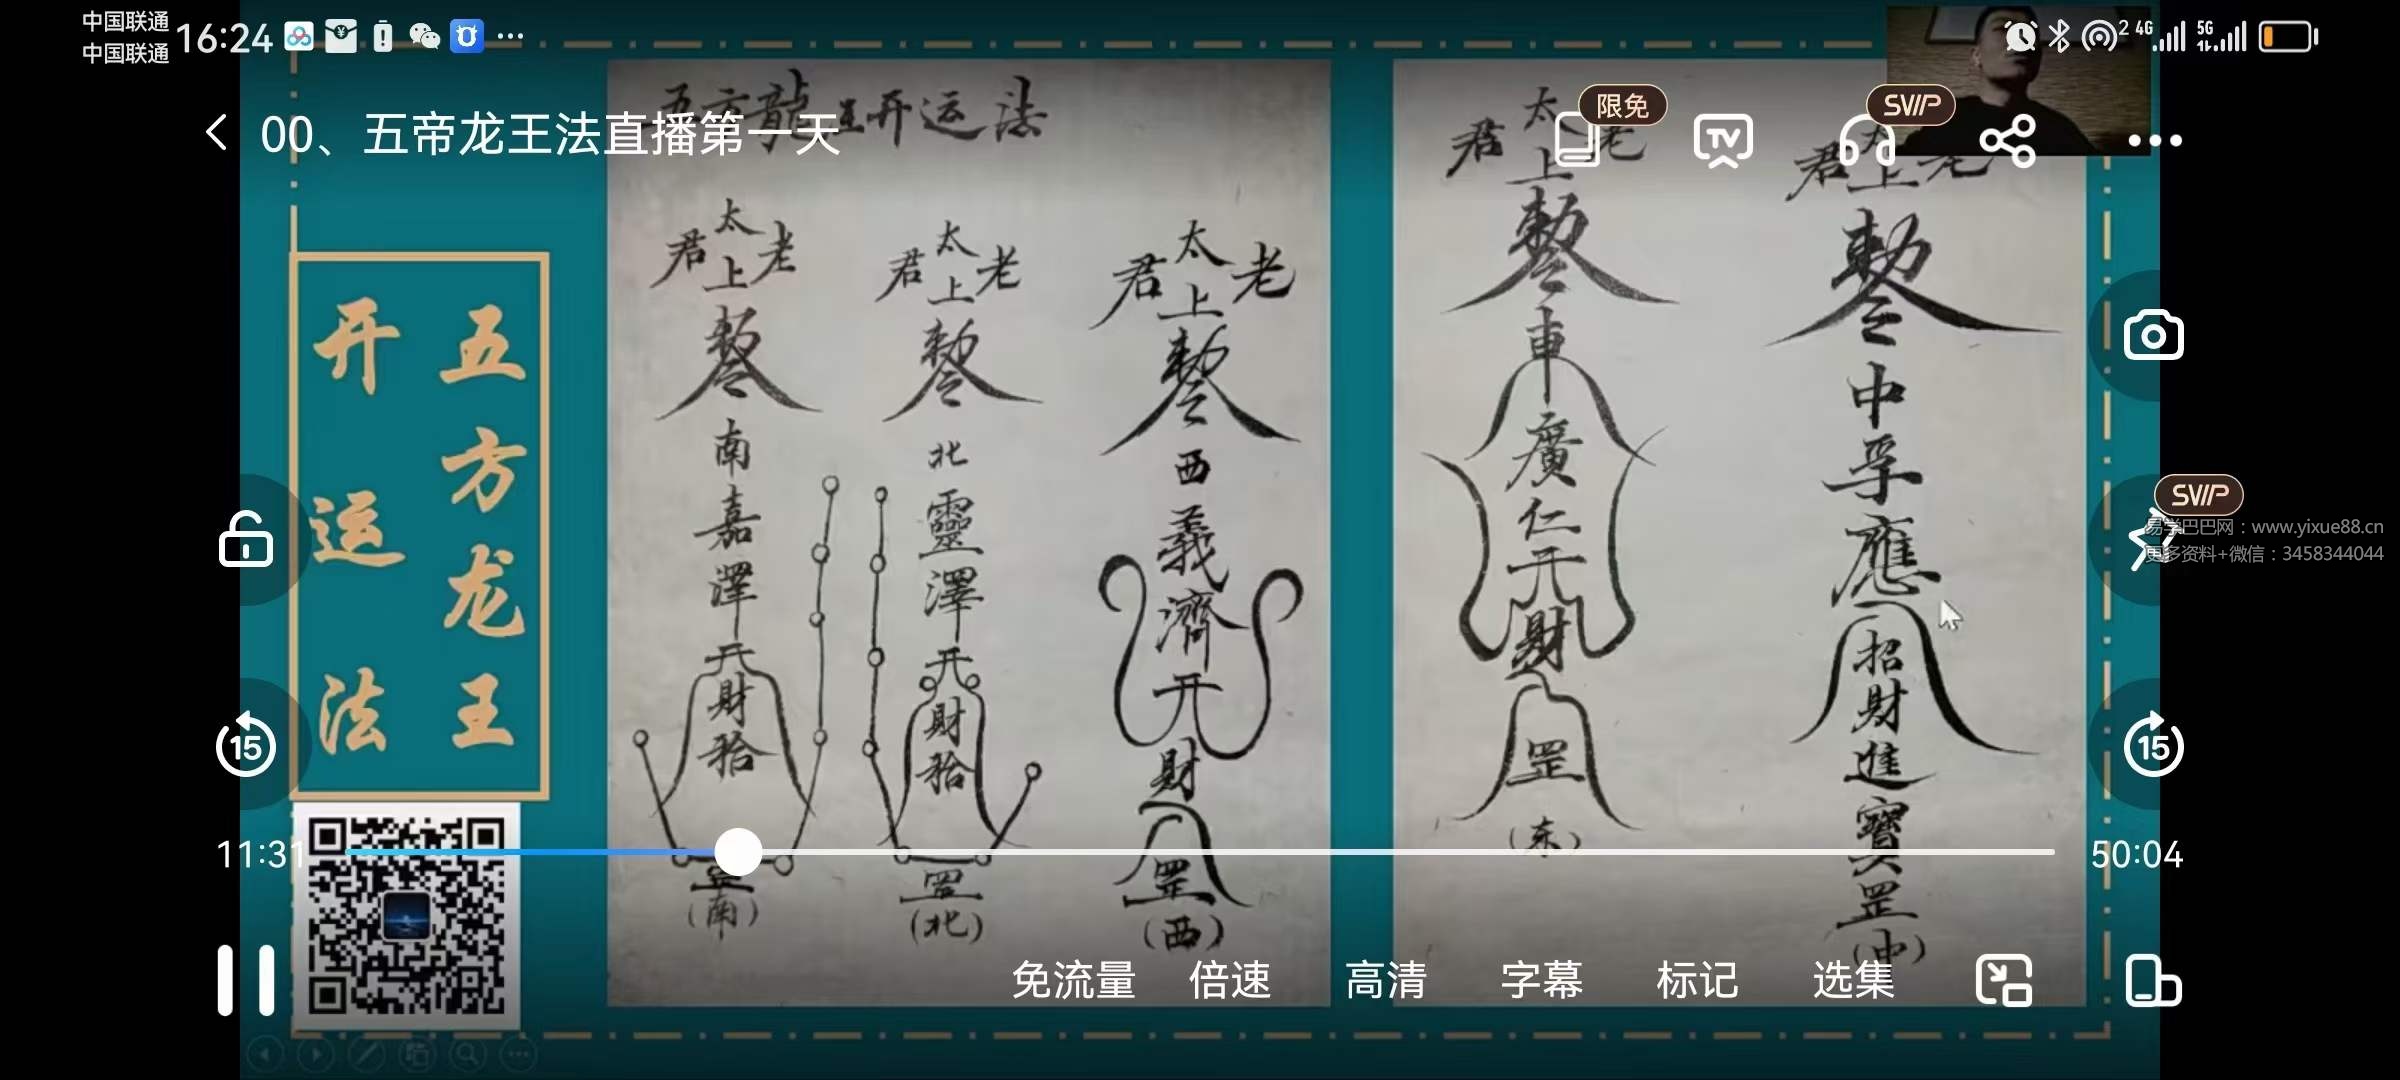 中国联通
中国联通
16:24
2 4G 5G
00、五帝龙王法直播第一天
限免
TV
SVIP
五方龍王开运法
五方龙王
开运法
太上老君
勅令
南嘉澤开財
罡
(南)
太上老君
勅令
北靈澤开財
罡
(北)
太上老君
勅令
西義濟开財
罡
(西)
太上老君
勅令
東廣仁开財
罡
(东)
太上老君
勅令
中孚應招財進寶罡
(中)
SVIP
易学巴巴网：www.yixue88.cn
更多资料+微信：3458344044
15
15
11:31
50:04
免流量
倍速
高清
字幕
标记
选集